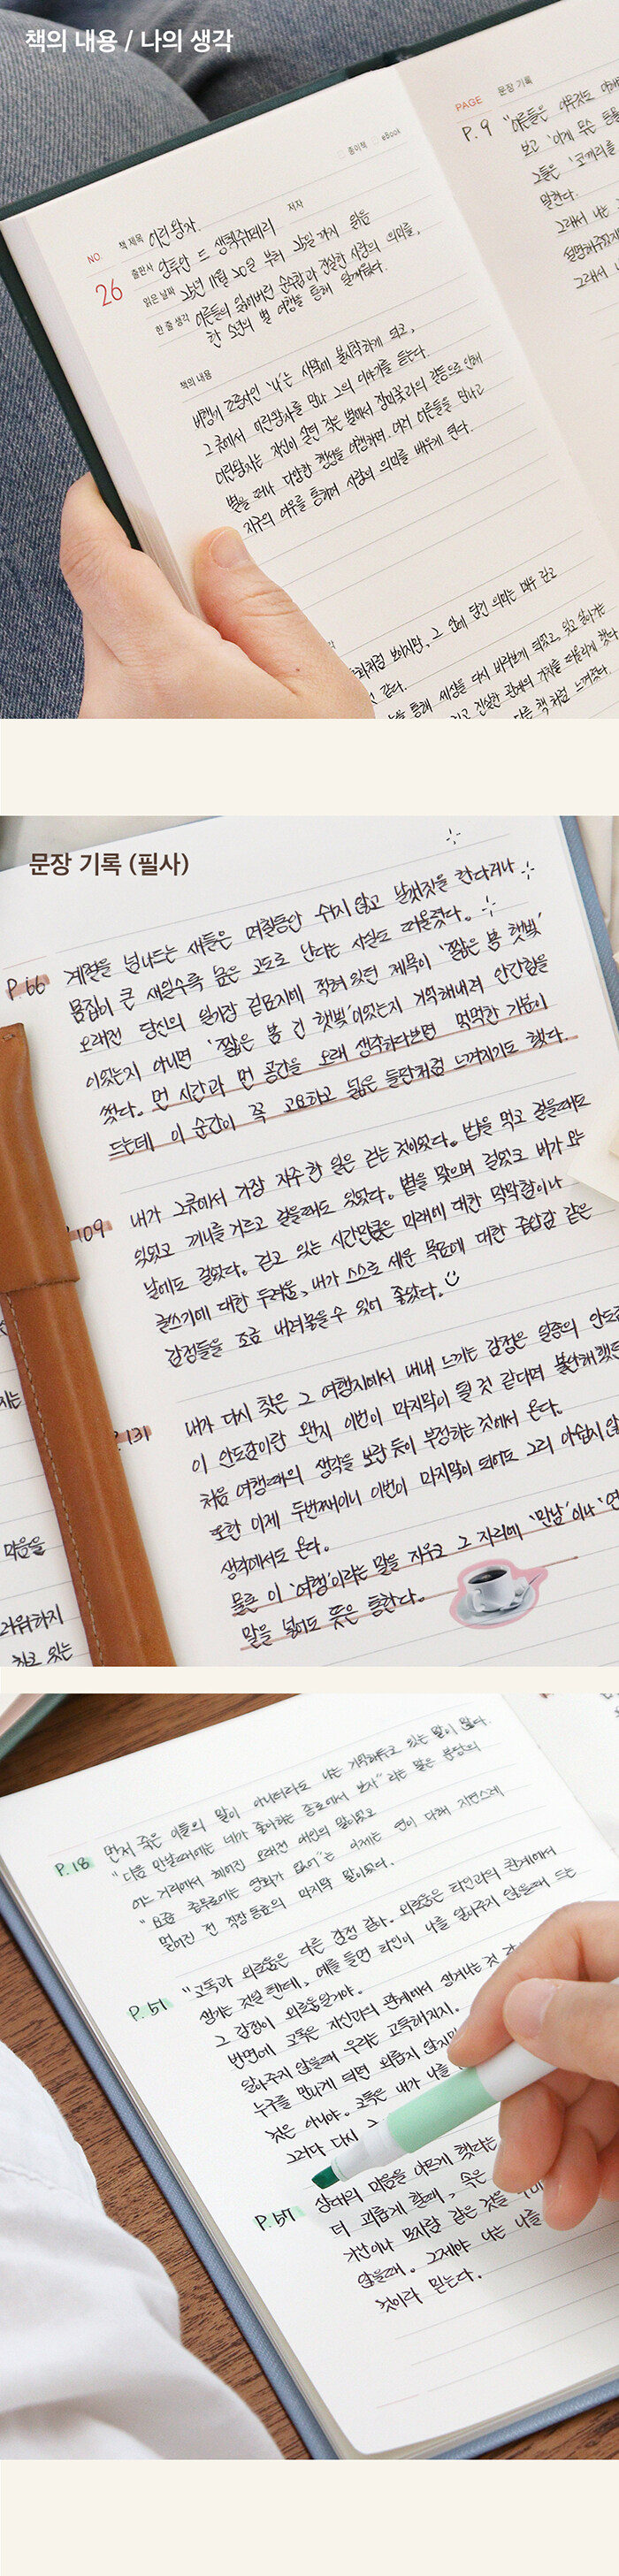 책의 내용 / 나의 생각
종이책 eBook
NO. 책 제목 어린왕자 저자
26 출판사 앙투안 드 생텍쥐페리
읽은 날짜 25년 11월 20일 부터 25일 까지 읽음
한 줄 생각 어른들의 잃어버린 순수함과 진실한 사랑의 의미를,
한 소년의 별 여행을 통해 일깨웠다.
책의 내용
비행기 조종사인 '나'는 사막에 불시착하게 되고,
그 곳에서 어린왕자를 만나 그의 이야기를 듣는다.
어린왕자는 자신이 살던 작은 별에서 장미꽃과의 갈등으로 인해
별을 떠나 다양한 행성을 여행하며, 여러 어른들을 만나고
지구의 여우를 통하여 사랑의 의미를 배우게 된다.
동화처럼 보이지만, 그 안에 담긴 의미는 매우 깊고
것 같다.
통해 세상을 다시 바라보게 되었고, 잊고 살아가는
그리고 진실한 관계의 가치를 떠올리게 했다
다른 책처럼 느껴졌다.
PAGE 문장 기록
P.9 "어른들은 아무것도 이해
보고 '이게 무슨
그들은 '코끼리를
말한다.
그래서 나는
설명해주었지
그래서 나
문장 기록 (필사)
P.66 계절을 넘나드는 새들은 며칠동안 쉬지 않고 날갯짓을 한다거나
몸집이 큰 새일수록 높은 고도로 난다는 사실도 떠올렸다.
오래전 당신의 일기장 겉표지에 적혀 있던 제목이 '짧은 봄 햇빛'
이었는지 아니면 '짧은 봄 긴 햇빛'이었는지 기억해내려 안간힘을
썼다. 먼 시간과 먼 공간을 오래 생각하다보면 먹먹한 기분이
드는데 이 순간이 꼭 고요하고 넓은 들판처럼 느껴지기도 했다.
109 내가 그곳에서 가장 자주 한 일은 걷는 것이었다. 밥을 먹고 걸을때도
있었고 끼니를 거르고 걸을때도 있었다. 볕을 맞으며 걸었고 비가 오는
날에도 걸었다. 걷고 있는 시간만큼은 미래에 대한 막막함이나
글쓰기에 대한 두려움, 내가 스스로 세운 목표에 대한 중압감 같은
감정들을 조금 내려놓을 수 있어 좋았다.
131 내가 다시 찾은 그 여행지에서 내내 느끼는 감정은 일종의 안도감
이 안도감이란 왠지 이번이 마지막이 될 것 같다며 불안해했던
처음 여행때의 생각을 보란 듯이 부정하는 것에서 온다.
또한 이제 두번째이니 이번이 마지막이 되어도 그리 아쉽지 않
생각에서도 온다.
물론 이 '여행'이라는 말을 지우고 그 자리에 '만남'이나 '연
말을 넣어도 뜻은 통한다.
지는
마음을
러워하지
하고 있는
P.18 먼저 죽은 이들의 말이 아니더라도 나는 기억해두고 있는 말이 많다.
"다음 만날때에는 네가 좋아하는 종로에서 보자" 라는 말은 분당의
어느 거리에서 헤어진 오래전 애인의 말이었고
"요즘 충무로에는 영화가 없어"는 이제는 연이 다해 자연스레
멀어진 전 직장 동료의 마지막 말이었다.
P.51 "고독과 외로움은 다른 감정 같아. 외로움은 타인과의 관계에서
생기는 것일 텐데, 예를 들면 타인이 나를 알아주지 않을때 드는
그 감정이 외로움일거야.
반면에 고독은 자신과의 관계에서 생겨나는 것 같
알아주지 않을때 우리는 고독해지지.
누구를 만나게 되면 외롭지 않지만
것은 아니야. 고독은 내가 나를
그러다 다시 그
P.57 상대의 마음을 아프게 했다는
더 괴롭게 할때, 속은
가난이나 모자람 같은 것을
않을때. 그제야 나는 나를
것이라 믿는다.